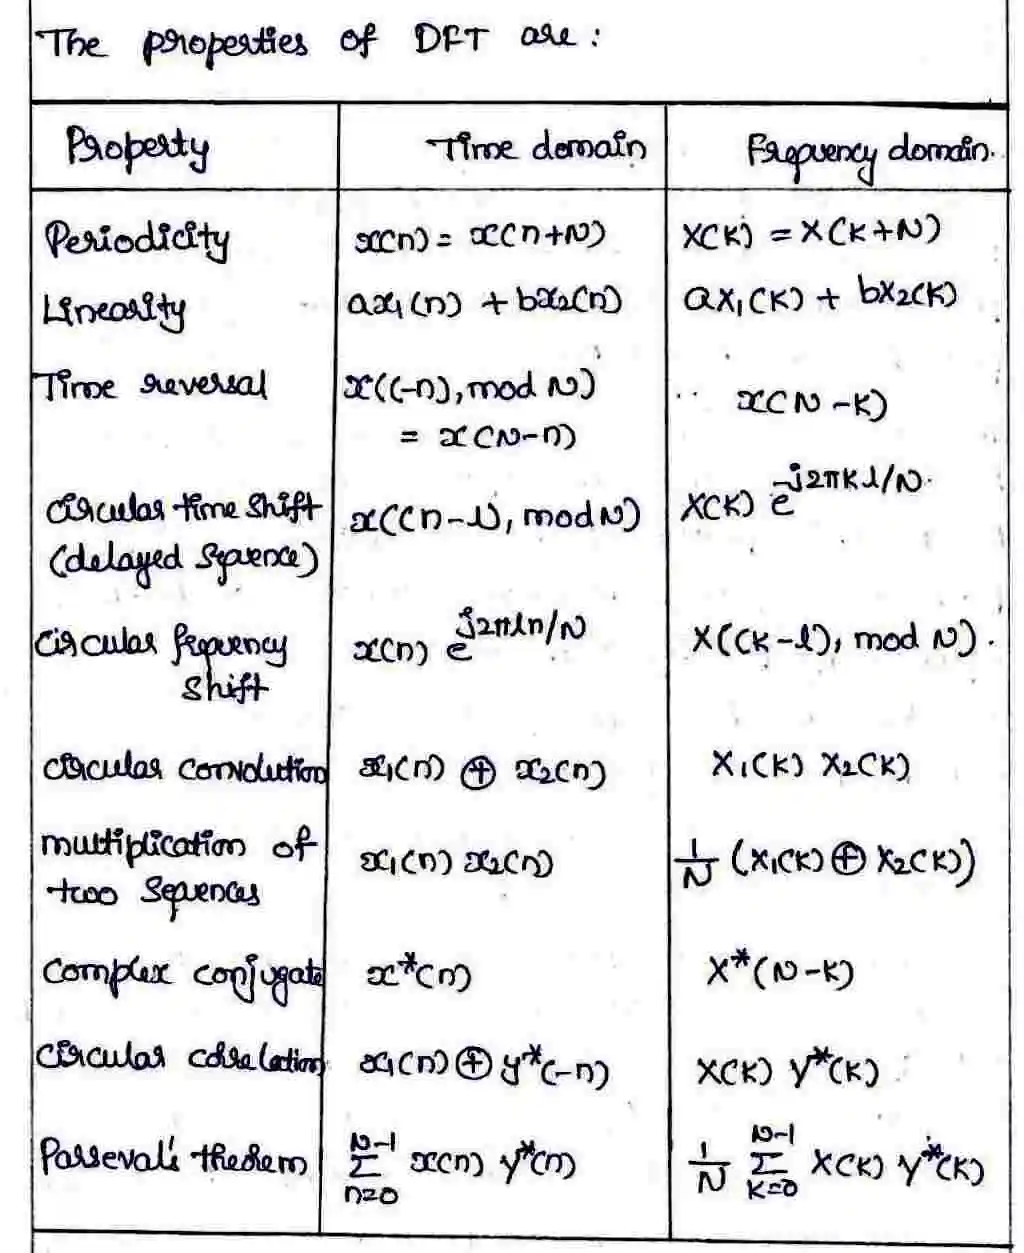 The properties of DFT are :
Property Time domain Frequency domain.
Periodicity x(n) = x(n+N) X(K) = X(K+N)
Linearity ax₁(n) + bx₂(n) aX₁(K) + bX₂(K)
Time reversal x((-n), mod N) x(N-K)
= x(N-n)
Circular time shift x((n-l), mod N) X(K) e^-j2πKl/N
(delayed sequence)
Circular frequency x(n) e^j2πln/N X((K-l), mod N).
shift
circular convolution x₁(n) ⊕ x₂(n) X₁(K) X₂(K)
multiplication of x₁(n) x₂(n) 1/N (X₁(K) ⊕ X₂(K))
two sequences
complex conjugate x*(n) X*(N-K)
circular correlation x₁(n) ⊕ y*(-n) X(K) Y*(K)
Parseval's theorem N-1 Σ n=0 x(n) y*(n) 1/N N-1 Σ K=0 X(K) Y*(K)